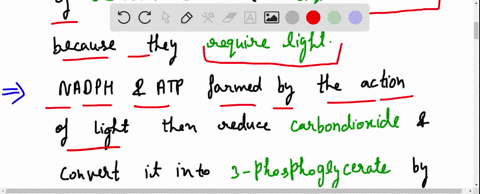 of
because they require light.
⇒ NADPH & ATP formed by the action
of light then reduce carbondioxide &
convert it into 3-phosphoglycerate by